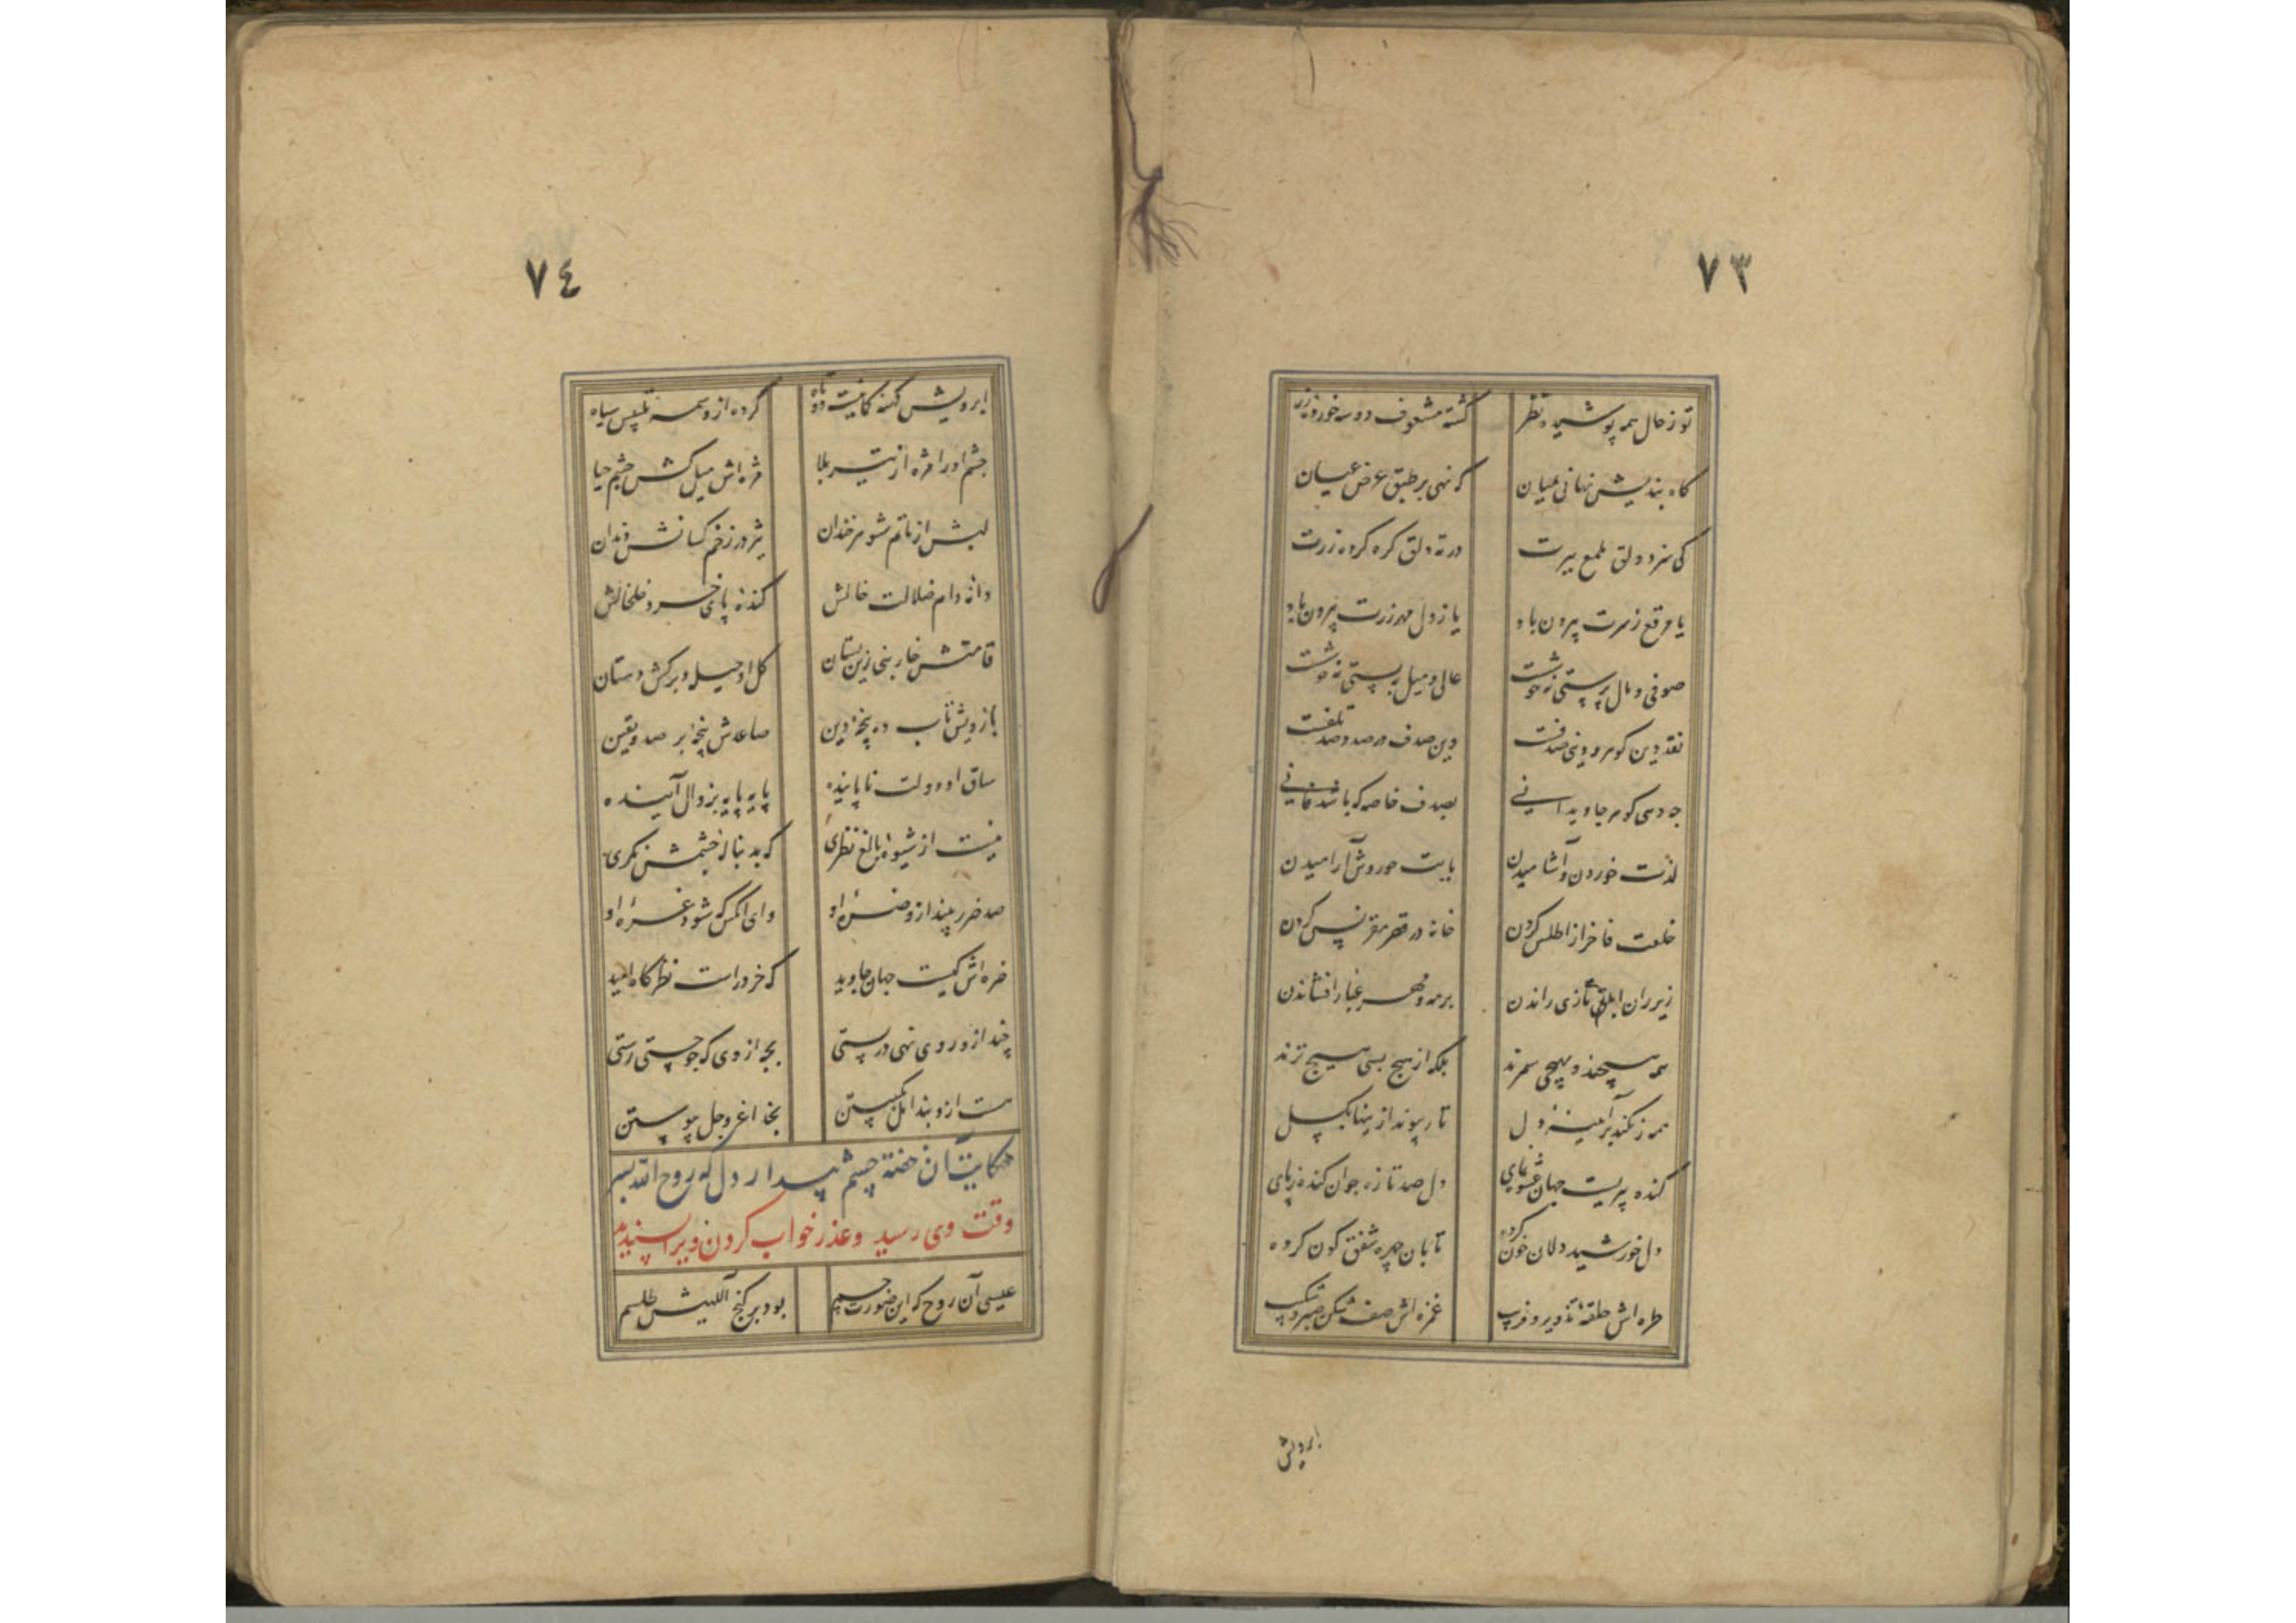 ٧٣
تو ز حال همه پوشیده نظر کشته مشعوف دو سه خورده زر
گاه بندیش نهانی بمیان که نهی بر طبق عرض عیان
کی سزد دلق ملمع ببرت در ته دلق گره کرده زرت
یا مرقع ز سرت بیرون باد یا ز دل مهر زرت بیرون باد
صوفی و مال پرستی نه خوشست عالی و میل بپستی نه خوشست
نقد دین گوهر و دنیی صدفست وین صدف در صدد صد تلفست
چه دهی گوهر جاویدانی بصدف خاصه که باشد فانی
لذت خوردن و آشامیدن با بت حوروش آرامیدن
خلعت فاخر از اطلس کردن خانه در قصر مقرنس کردن
زیر ران ابلق تازی راندن بر مه و مهر غبار افشاندن
همه هیچند و بهیچی سمرند بلکه از هیچ بسی هیچ ترند
همه زنگند بر آیینه دل تار پیوند ازینها بگسل
کنده پیریست جهان عشوه نمای دل صد تازه جوان کنده ز پای
دل خورشید دلان خون کرده تا بان چهره شفق گون کرده
طره اش حلقه تزویر و فریب غمزه اش صف شکن صبر و شکیب
ابرویش
٧٤
ابرویش کهنه کمانیست دو تاه کرده از وسمه تلبیس سیاه
چشم او را مژه از تیر بلا مژه اش میل کش چشم حیا
لبش از ماتم شوهر خندان بژ در زخم کسانش دندان
دانه دام ضلالت خالش کنده پای خسرو خلخالش
قامتش خار بنی زین بستان گل او حیله و برگش دستان
بازویش تاب ده پنجه دین ساعدش پنجه بر صد و یقین
ساق او دولت ناپاینده پایه پایه بزوال آینده
نیست از شیوه بالغ نظری که بدنباله چشمش نگری
صد ضرر بیند از و ضره او وای آنکس که شود غره او
ضره اش کیست جهان جاوید که خرد راست نظرگاه امید
چند ازو روی نهی در پستی بجه از وی که چو جستی رستی
هست ازو بند امل بگسستن بخدا عز و جل پیوستن
حکایت آن خفته چشم بیدار دل که روح الله بسر
وقت وی رسید و عذر خواب کردن ویرا پسندید
عیسی آن روح که این صورت جسم بود بر گنج آلهیش طلسم